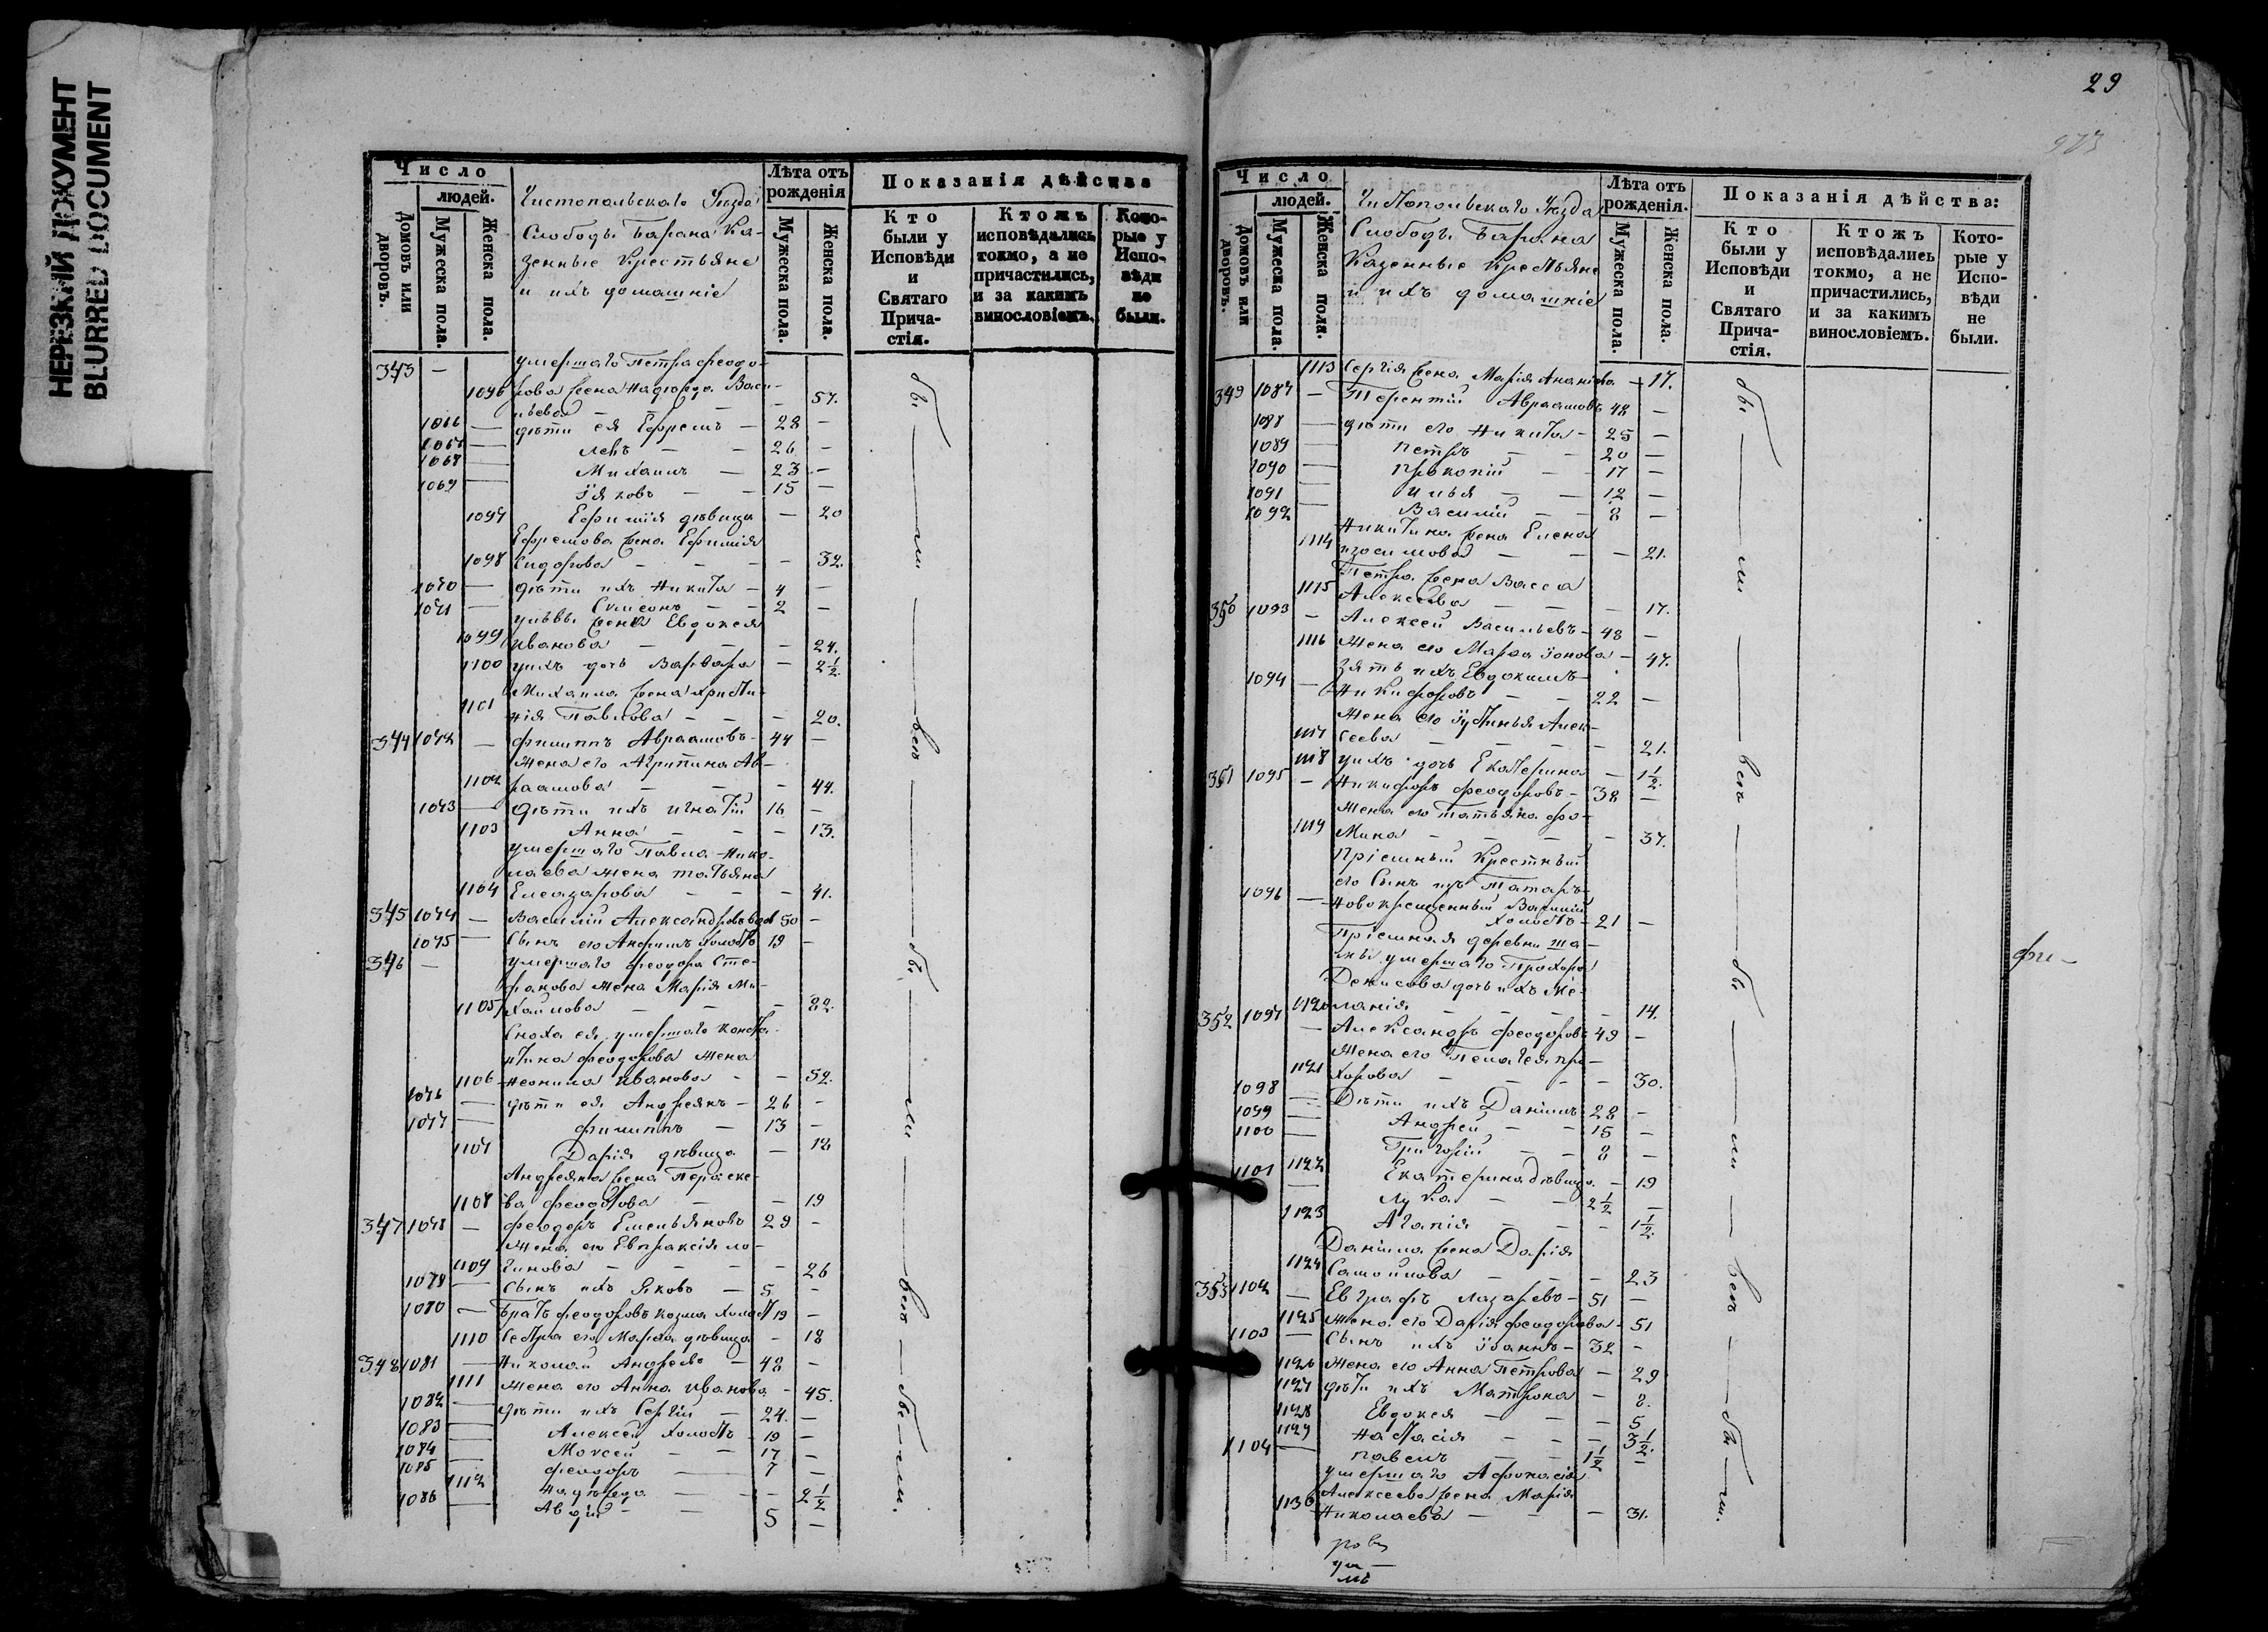 НЕРЕЗКИЙ ДОКУМЕНТ
BLURRED DOCUMENT
Число
людей.
Домовъ или дворовъ.
Мужеска пола.
Женска пола.
Чистопольскаго Уѣзда
Слободы Барана Ка-
зенные Крестьяне
и ихъ домашніе
Лѣта отъ рожденія
Мужеска пола.
Женска пола.
Показанія дѣйства
Кто были у Исповѣди и Святаго Причастія.
Ктожъ исповѣдались токмо, а не причастились, и за какимъ винословіемъ.
Которые у Исповѣди не были.
343 — умершаго Петра Феодо-
1096 рова жена Надежда Васи-
льева — — — 57.
1066 — дѣти ея Ефремъ — 28 —
1067 — Левъ — — 26 —
1068 — Михаилъ — 23 —
1069 — Іяковъ — — 15 —
1097 Ефимія дѣвица — 20
Ефремова жена Ефимія
1098 Сидорова — — — 32.
1070 — дѣти ихъ Никита — 4 —
1071 — Симеонъ — — 2 —
у Львы жена Евдокея
1099 Иванова — — — 24.
1100 у ихъ дочь Варвара — 2½
Михаила жена Христи-
1101 нія Павлова — — — 20.
344 1072 — Филиппъ Авраамовъ — 44 —
Жена его Агрипина Ав-
1102 раамова — — — 44.
1073 — дѣти ихъ Игнатій 16 —
1103 Анна — — — 13.
умершаго Павла Нико-
лаева жена Татьяна
1104 Елеазарова — — — 41.
345 1074 — Василий Александровъ вдов 50 —
1075 — Сынъ его Анфимъ холостъ 19 —
346 — умершаго Феодора Сте-
фанова жена Марія Ми-
1105 хайлова — — — 82.
Сноха ея умершаго Конста-
нтина Феодорова жена
1106 Неонила Иванова — — 52.
1076 — дѣти ея Андреянъ — 26 —
1077 — Филиппъ — 13 —
1107 Дарія дѣвица — 18
Андреяна жена Параске-
1108 ва Феодотова — — 19
347 1078 — Феодоръ Емельяновъ 29 —
Жена его Евпраксія Ло-
1109 гинова — — — 26
1079 — Сынъ ихъ Яковъ — 5 —
1080 — Братъ Феодоровъ Козма холост 19 —
1110 Сестра его Марѳа дѣвица — 18
348 1081 — Николай Андреевъ — 48 —
1111 Жена его Анна Иванова — 45.
1082 — дѣти ихъ Сергій — 24. —
1083 — Алексей холостъ — 19 —
1084 — Моисей — — 17 —
1085 — Феодоръ — 7 —
1112 Надежда — — 2½
1086 — Авдій — — 5 —
бы — ли — вси — бы — ли — вси — бы — ли.
29
Число
людей.
Домовъ или дворовъ.
Мужеска пола.
Женска пола.
Чистопольскаго Уѣзда
Слободы Барана
Казенные Крестьяне
и ихъ домашніе
Лѣта отъ рожденія.
Мужеска пола.
Женска пола.
Показанія дѣйства:
Кто были у Исповѣди и Святаго Причастія.
Ктожъ исповѣдались токмо, а не причастились, и за какимъ винословіемъ.
Которые у Исповѣди не были.
1113 Сергія жена Марія Ананьева — 17.
349 1087 — Терентій Авраамовъ 48 —
1088 — дѣти его Никита — 25 —
1089 — Петръ — — 20 —
1090 — Прокопій — — 17 —
1091 — Илья — — 12 —
1092 — Василий — — 8 —
Никитина жена Елена
1114 Изосимова — — — 21.
Петра жена Васса
1115 Алексеева — — — 17.
350 1093 — Алексей Васильевъ — 48 —
1116 Жена его Марѳа Іонова — 47.
Зять ихъ Евдокимъ
1094 — Никифоровъ — — 22 —
Жена его Іустинья Алек-
1117 сеева — — — 21.
1118 у ихъ дочь Екатерина — 1½
351 1095 — Никифоръ Феодоровъ — 38 —
Жена его Татьяна Фо-
1119 мина — — — 37.
Пріемный Крестный
его Сынъ изъ Татаръ
1096 — Новокрещенный Василий
холостъ — 21 —
Пріемная деревни Ша-
лкы умершаго Прохора
Денисова дочь ихъ Ме-
1120 ланія — — — 14.
352 1097 — Александръ Феодоровъ 49 —
Жена его Пелагея Про-
1121 хорова — — — 50.
1098 — Дѣти ихъ Даніилъ 28 —
1099 — Андрей — — 15 —
1100 — Григорій — — 8 —
1122 Екатерина дѣвица — 19
1101 — Лука — — 2½ —
1123 Агапія — — — 1½
Даніила жена Дарія
1124 Самойлова — — — 23
353 1102 — Евграфъ Лазаревъ — 51 —
1125 Жена его Дарія Феодорова — 51
1103 — Сынъ ихъ Іоаннъ — 32 —
1126 Жена его Анна Петрова — 29
1127 дѣти ихъ Матрона — 8.
1128 Евдокея — — — 5
1129 Настасія — — — 3½
1104 — Павелъ — — 1½ —
умершаго Афонасія
Алексеева жена Марія
1130 Николаева — — — 31.
бы — ли — вси — бы — ли — вси — бы — ли.